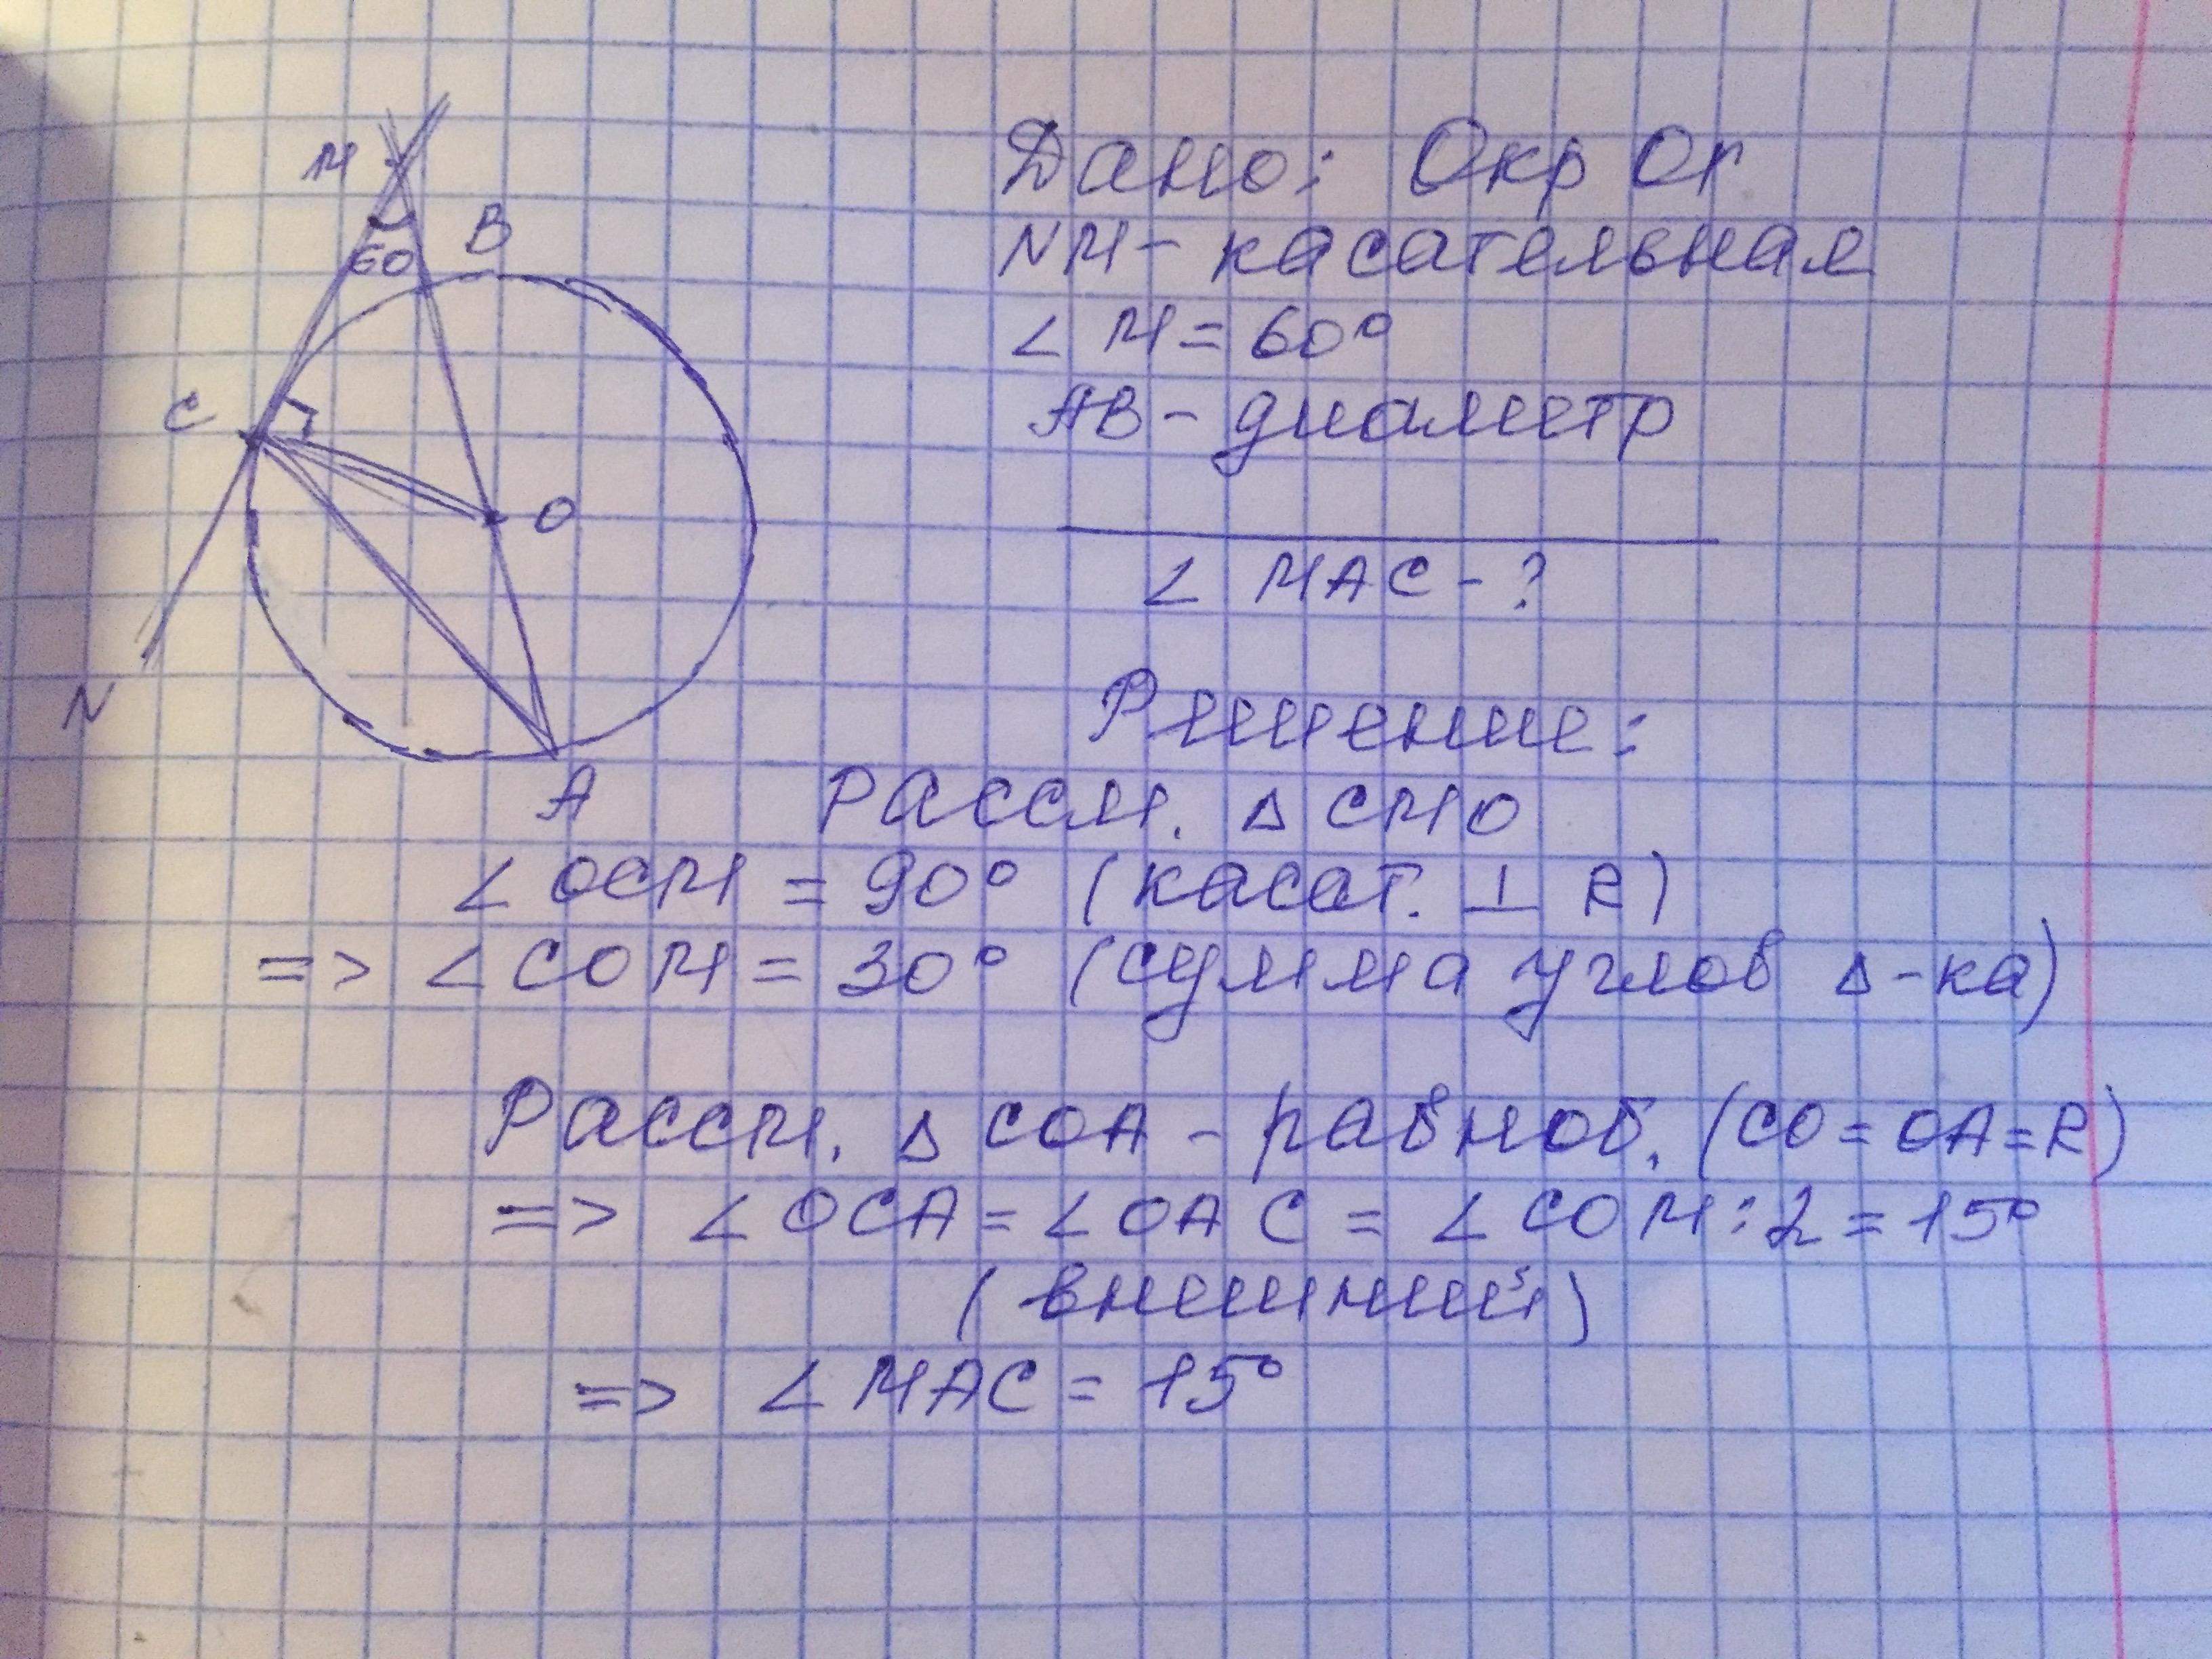 M
60
B
C
O
N
A
Дано: Окр Or
NM - касательная
∠ M = 60°
AB - диаметр
∠ MAC - ?
Решение:
Рассм. Δ CMO
∠ OCM = 90° (касат. ⊥ R)
=> ∠ COM = 30° (сумма углов Δ-ка)
Рассм. Δ COA - равноб. (CO = OA = R)
=> ∠ OCA = ∠ OAC = ∠ COM : 2 = 15°
(внешний)
=> ∠ MAC = 15°